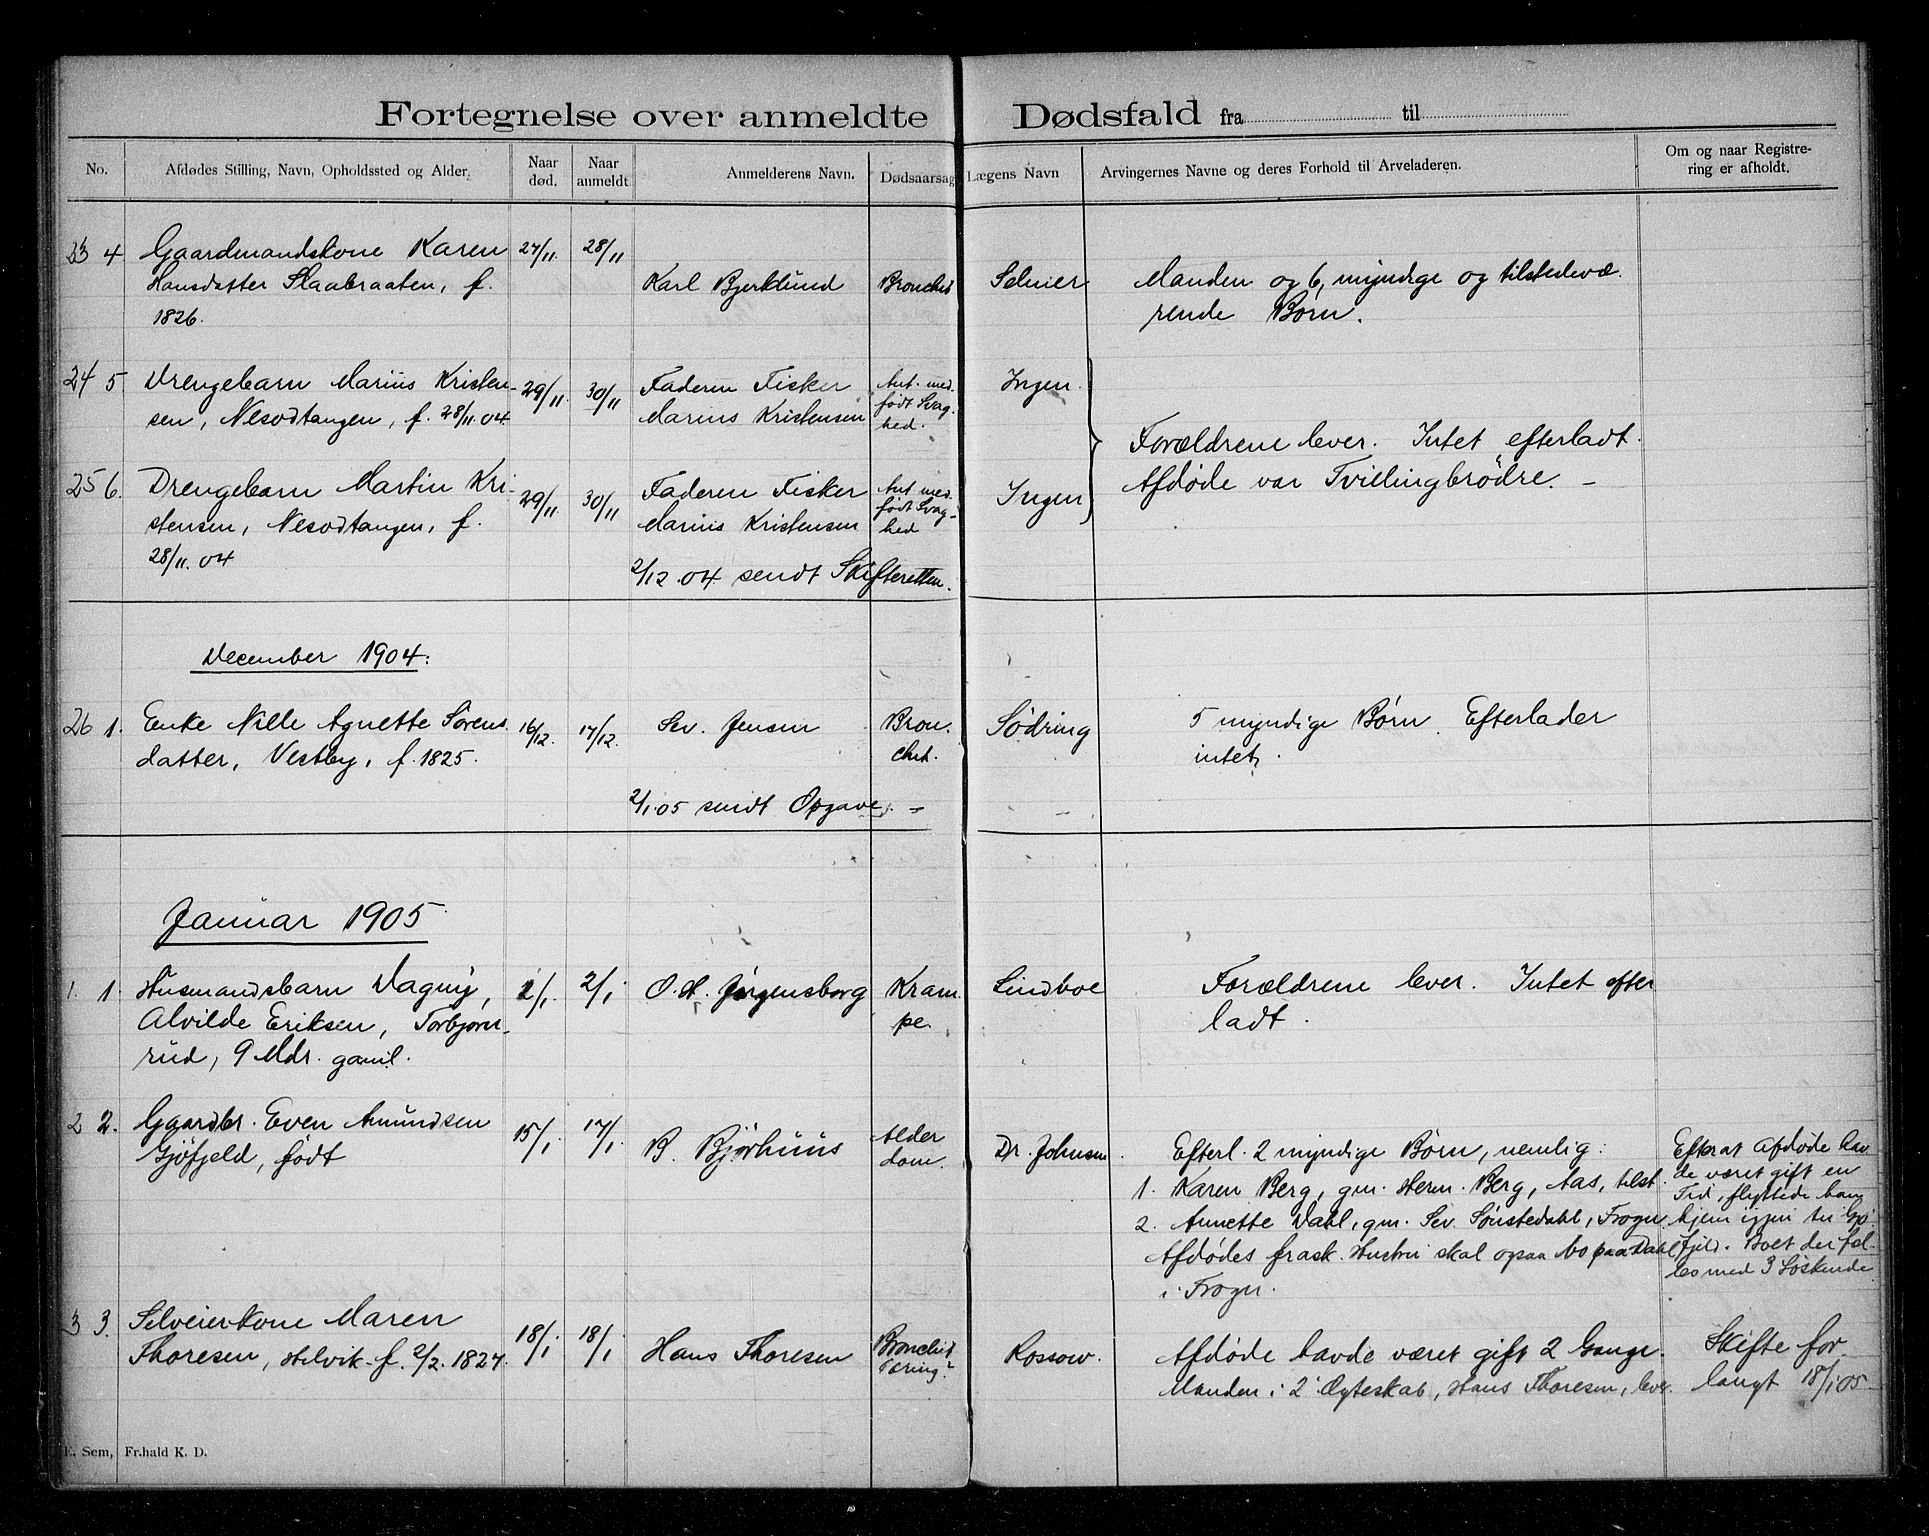 Fortegnelse over anmeldte Dødsfald fra til
No.
Afdødes Stilling, Navn, Opholdssted og Alder.
Naar død.
Naar anmeldt
Anmelderens Navn.
Dødsaarsag
Lægens Navn
Arvingernes Navne og deres Forhold til Arveladeren.
Om og naar Registrering er afholdt.
23 4 Gaardmandskone Karen 27/11 28/11
Hansdatter Skaabraaten, f. Karl Bjerklund Bronchit Selmer Manden og 6, myndige og tilstedevæ-
1826. rende Børn.
24 5 Drengebarn Marius Kristen- 29/11. 30/11 Faderen Fisker Ant. med- Ingen
sen, Nesodtangen, f. 28/11.04 Marius Kristensen født Svag-
hed.
Forældrene lever. Intet efterladt.
25 6. Drengebarn Martin Kri- 29/11 30/11 Faderen Fisker Ant med- Ingen Afdøde var Tvillingbrødre. –
stensen, Nesodtangen, f. Marius Kristensen født Svag-
28/11.04 hed
2/12.04 sendt Skifteretten.
December 1904:
26 1. Enke Nille Agnette Sørens 16/12. 17/12. Sev. Jensen Bron- Sødring 5 myndige Børn. Efterlader
datter, Vestby, f. 1825. chit. intet.
2/1.05 sendt Opgave. –
Januar 1905
1. 1. Husmandsbarn Dagny, 2/1. 2/1 O. H. Jørgensborg Kram- Lindboe Forældrene lever. Intet efter
Alvilde Eriksen, Torbjørn- pe. ladt.
rud, 9 Mdr. gaml.
2 2. Gaardbr. Even Amundsen 15/1. 17/1. B. Bjørhuus Alder Dr. Johnsen. Efterl. 2 myndige Børn, nemlig: Efterat Afdøde hav-
Gjøfjeld, født dom. 1. Karen Berg, gm. Herm. Berg, Aas, tilst. de været gift en
2. Annette Dahl, gm. Sev. Sønstedahl, Frogn. Tid, flyttede han
Afdødes frask. Hustru skal ogsaa bo paa Dahl hjem igjen til Gjø-
i Frogn. fjeld. Boet der fæl-
les med 3 Søskende
3 3. Selveierkone Maren 18/1 18/1 Hans Thoresen Bronchit Rossow. Afdøde havde været gift 2 Gange. Skifte for-
Thoresen, Helvik f. 2/2. 1827. Tæring? Manden i 2' Ægteskab, Hans Thoresen, lever. langt 18/1 05
E. Sem, Fr.hald K. D.